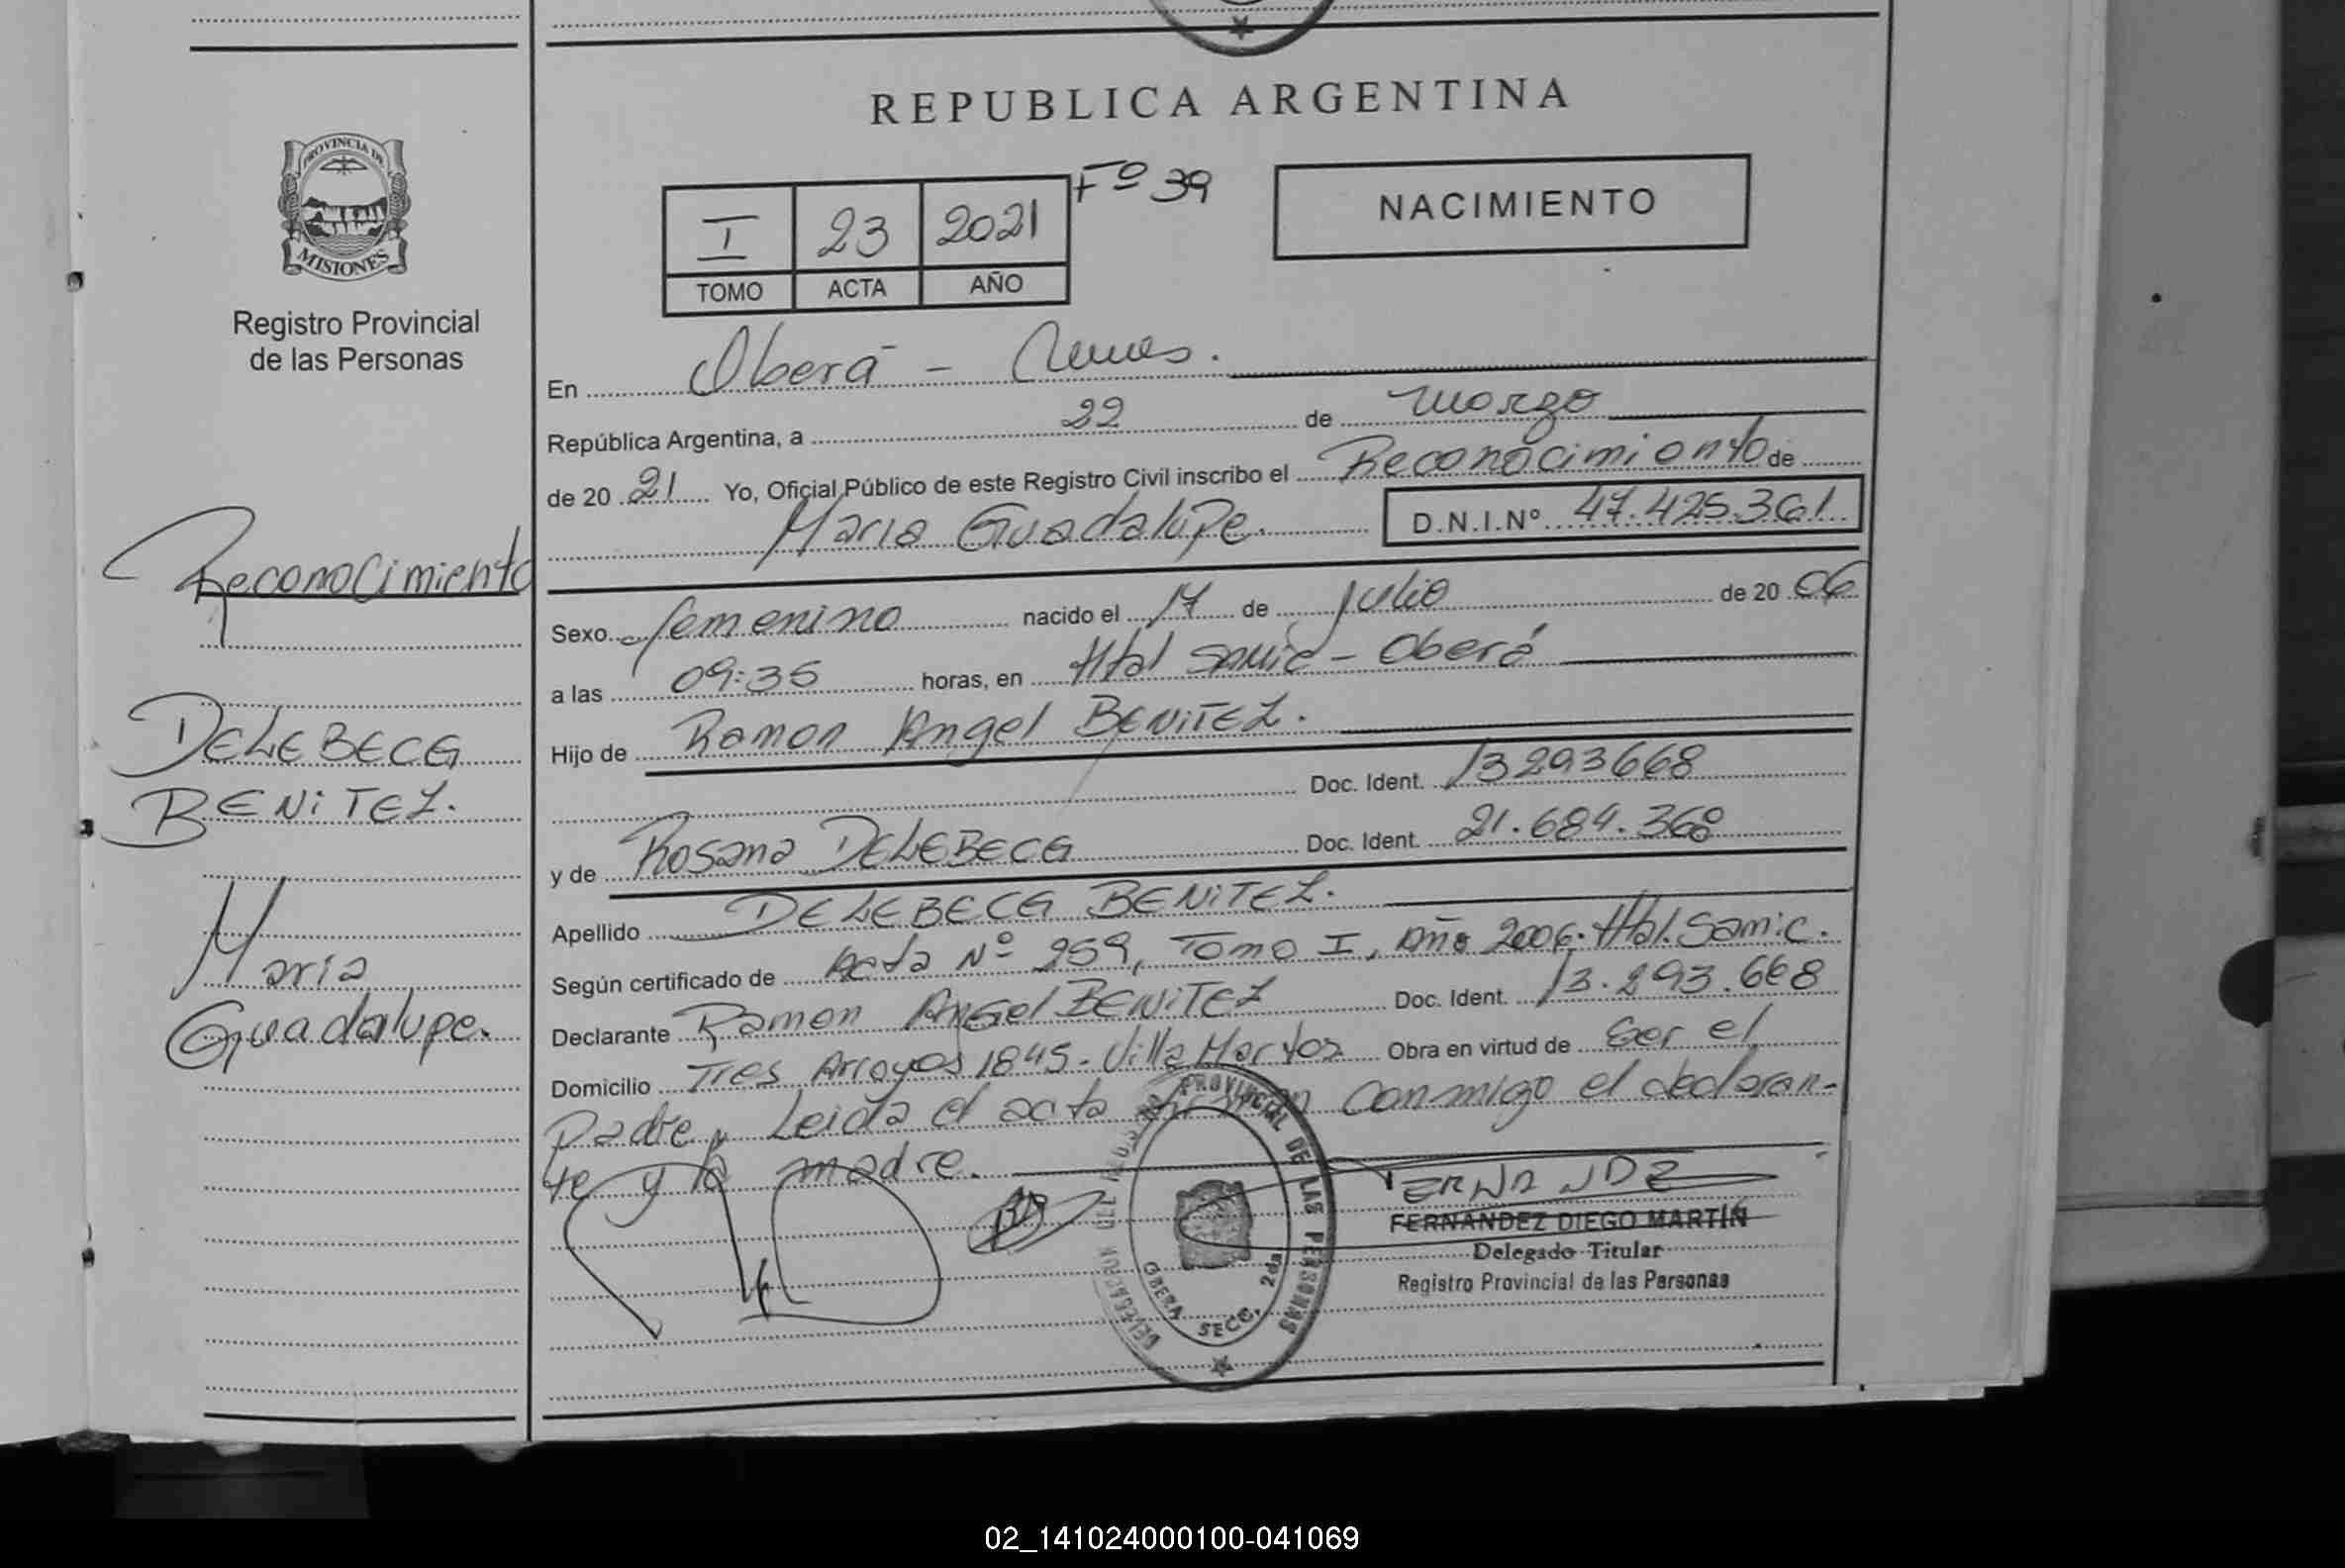 REPUBLICA ARGENTINA
PROVINCIA DE
MISIONES
Registro Provincial
de las Personas
I 23 2021 Fº 39
TOMO ACTA AÑO
NACIMIENTO
En Oberá -
República Argentina, a 22 de marzo
de 20 21 Yo, Oficial Público de este Registro Civil inscribo el Reconocimiento de
Maria Guadalupe. D.N.I.Nº 47.425.361
Reconocimiento
DELEBECG
BENITEZ.
Maria
Guadalupe.
Sexo femenino nacido el 17 de julio de 20 06
a las 09:35 horas, en Htal Samic - Oberá
Hijo de Ramon Angel BENITEZ.
Doc. Ident. 13293668
y de Rosana DELEBECG Doc. Ident. 21.684.368
Apellido DELEBECG BENITEZ.
Según certificado de Acta Nº 259, Tomo I, Año 2006. Htal. Samic.
Declarante Ramon Angel BENITEZ Doc. Ident. 13.293.668
Domicilio Tres Arroyos 1845 - Villa Martos Obra en virtud de Ser el
Padre, Leida el acta firman conmigo el declaran-
te y la madre.
PROVINCIAL DE LAS PERSONAS
OBERA SECC. 2da
FERNANDEZ DIEGO MARTÍN
Delegado Titular
Registro Provincial de las Personas
02_141024000100-041069